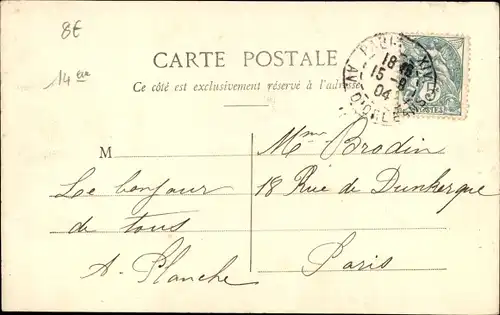 8€
14ème
CARTE POSTALE
Ce côté est exclusivement réservé à l'adresse
PARIS XIV
18
15-8
04
AV. D'ORLEANS
5
M
Mme Brodin
18 Rue de Dunkerque
Paris
Le bonjour
de tous
A. Planche